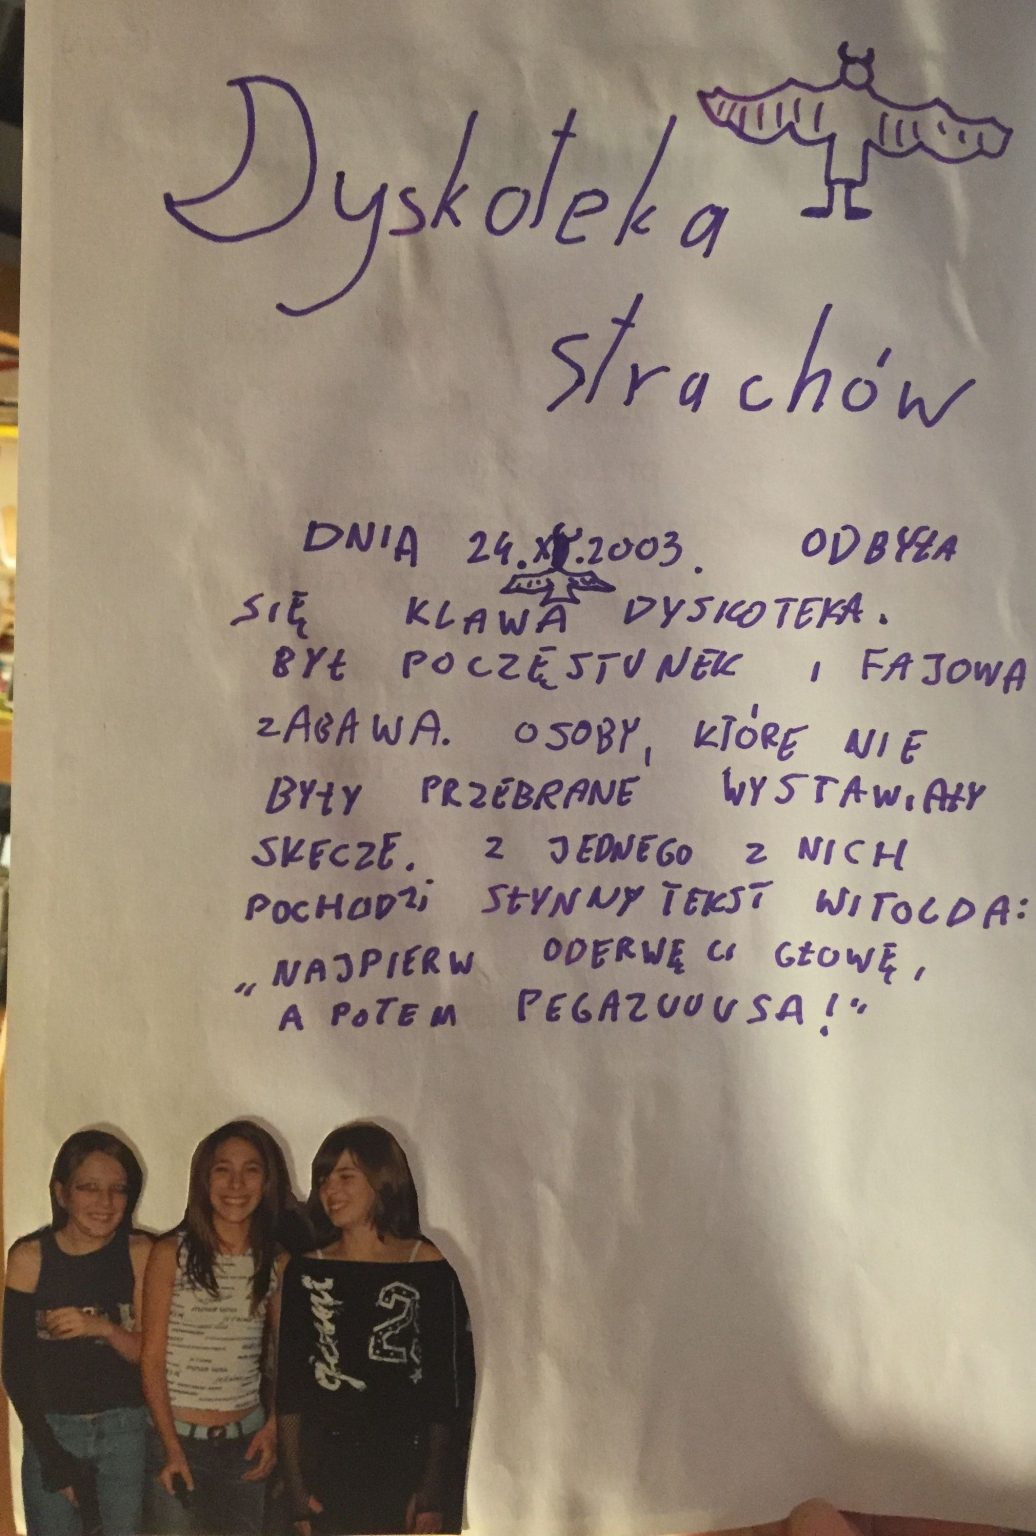 Dyskoteka
strachów
DNIA 24.X .2003. ODBYŁA
SIĘ KLAWA DYSKOTEKA.
BYŁ POCZĘSTUNEK I FAJOWA
ZABAWA. OSOBY, KTÓRE NIE
BYŁY PRZEBRANE WYSTAWIAŁY
SKECZE. Z JEDNEGO Z NICH
POCHODZI SŁYNNY TEKST WITOLDA:
„NAJPIERW ODERWĘ CI GŁOWĘ,
A POTEM PEGAZUUUSA!“